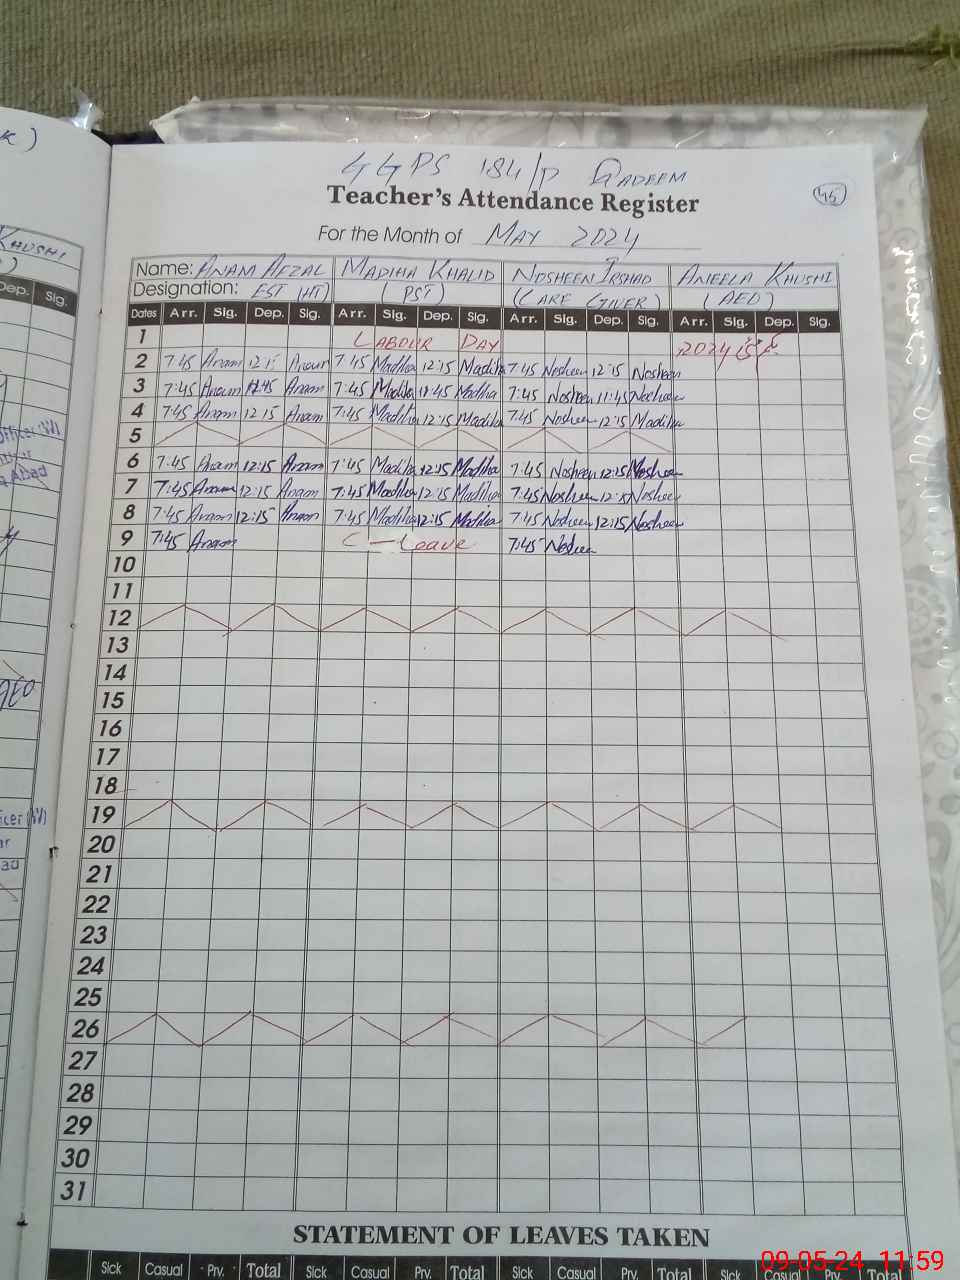 K)
GGPS 184/P QADEEM
Teacher's Attendance Register
45
For the Month of MAY 2024
KHUSHI
Name: ANAM AFZAL MADIHA KHALID NOSHEEN IRSHAD ANEELA KHUSHI
Designation: EST (HT) (PST) (CARE GIVER) (AEO)
Dep. Sig.
Dates Arr. Sig. Dep. Sig. Arr. Sig. Dep. Sig. Arr. Sig. Dep. Sig. Arr. Sig. Dep. Sig.
1 LABOUR DAY 2024
2 7:45 Anam 12:15 Anam 7:45 Madiha 12:15 Madiha 7:45 Nosheen 12:15 Nosheen
3 7:45 Anam 11:45 Anam 7:45 Madiha 11:45 Madiha 7:45 Nosheen 11:45 Nosheen
4 7:45 Anam 12:15 Anam 7:45 Madiha 12:15 Madiha 7:45 Nosheen 12:15 Madiha
5
6 7:45 Anam 12:15 Anam 7:45 Madiha 12:15 Madiha 7:45 Nosheen 12:15 Nosheen
7 7:45 Anam 12:15 Anam 7:45 Madiha 12:15 Madiha 7:45 Nosheen 12:15 Nosheen
8 7:45 Anam 12:15 Anam 7:45 Madiha 12:15 Madiha 7:45 Nosheen 12:15 Nosheen
9 7:45 Anam C-Leave 7:45 Nosheen
10
11
12
13
14
15
16
17
18
19
20
21
22
23
24
25
26
27
28
29
30
31
STATEMENT OF LEAVES TAKEN
Sick Casual Prv. Total Sick Casual Prv. Total Sick Casual Prv. Total Sick Casual Prv. Total
09-05-24 11:59